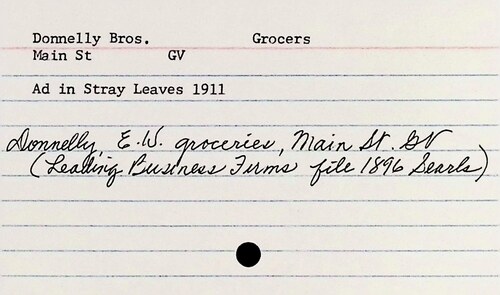 Donnelly Bros. Grocers
Main St GV
Ad in Stray Leaves 1911
Donnelly, E.W. groceries, Main St. GV
(Leading Business Firms file 1896 Searls)